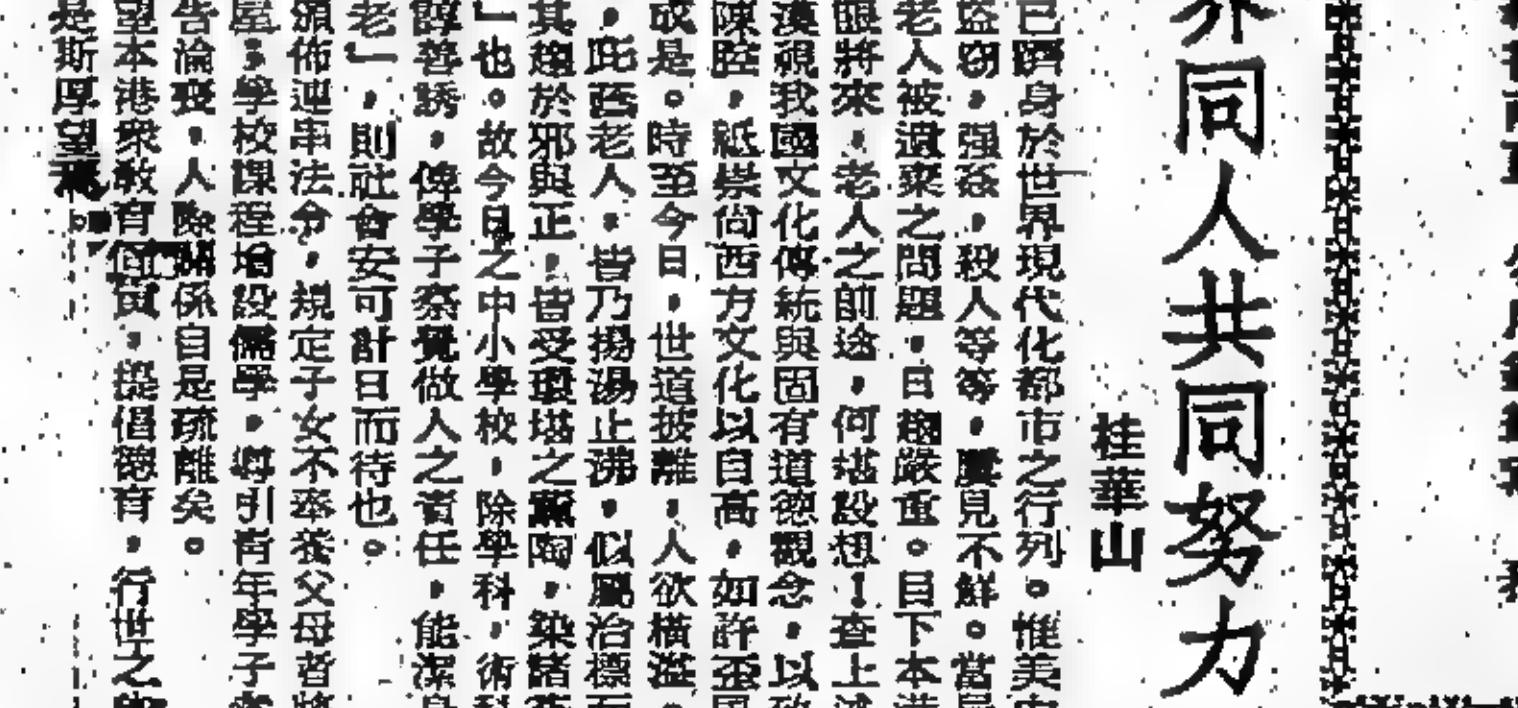 界同人共同努力
桂華山
已躋身於世界現代化都市之行列。惟美中
盜竊，强姦，殺人等等，屢見不鮮。當局
老人被遺棄之問題，日趨嚴重。目下本港
眼將來，老人之前途，何堪設想！查上述
漠視我國文化傳統與固有道德觀念，以致
陳腔，祇崇尚西方文化以自高，如許歪風
成是。時至今日，世道披離，人欲橫溢。
，此舊老人，皆乃揚湯止沸，似屬治標而
其趨於邪與正，皆受環境之薰陶，染諸蒼
」也。故今日之中小學校，除學科，術科
諄善誘，俾學子察覺做人之責任，能潔身
老」，則社會安可計日而待也。
頒佈連串法令，規定子女不奉養父母者將
屋；學校課程增設儒學，導引青年學子
告淪喪，人際關係自是疏離矣。
望本港衆教育，提倡德育，行世之
是斯厚望焉